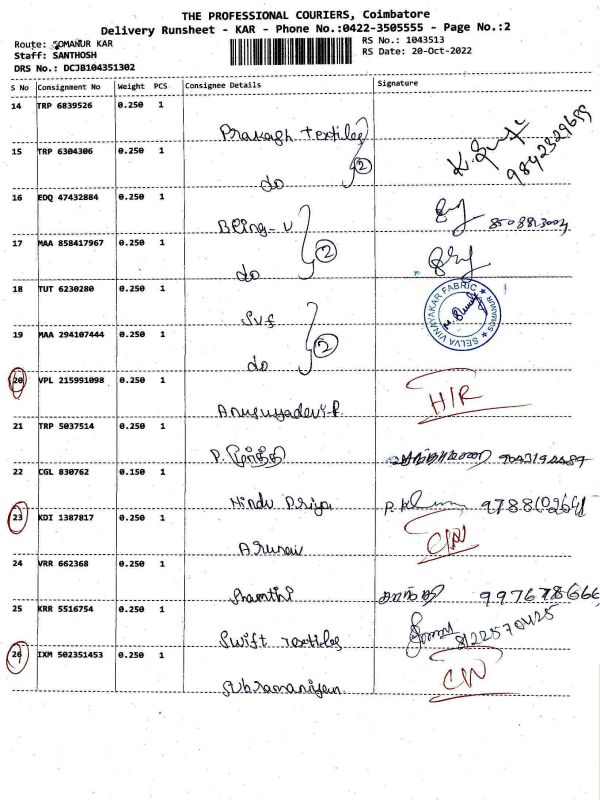 THE PROFESSIONAL COURIERS, Coimbatore
Delivery Runsheet - KAR - Phone No.:0422-3505555 - Page No.:2
Route: SOMANUR KAR
RS No.: 1043513
Staff: SANTHOSH
RS Date: 20-Oct-2022
DRS No.: DCJB104351302
S No Consignment No Weight PCS Consignee Details Signature
14 TRP 6839526 0.250 1
Prakash textiles
15 TRP 6304306 0.250 1
do 2
9842329699
16 EDQ 47432884 0.250 1
Bling-U
17 MAA 858417967 0.250 1
do 2
18 TUT 6230280 0.250 1
Svf
SELVA VINAYAKAR FABRIC ★ SOMANUR ★
19 MAA 294107444 0.250 1
do 2
20 VPL 215991098 0.250 1
Anusuyadevi-R
21 TRP 5037514 0.250 1
P. மூர்த்தி
22 CGL 830762 0.150 1
Hindu Priya
23 KDI 1387817 0.250 1
24 VRR 662368 0.250 1
Shanthi சாந்தி
25 KRR 5516754 0.250 1
Swift textiles 8122570425
26 IXM 502351453 0.250 1
Subramaniyan